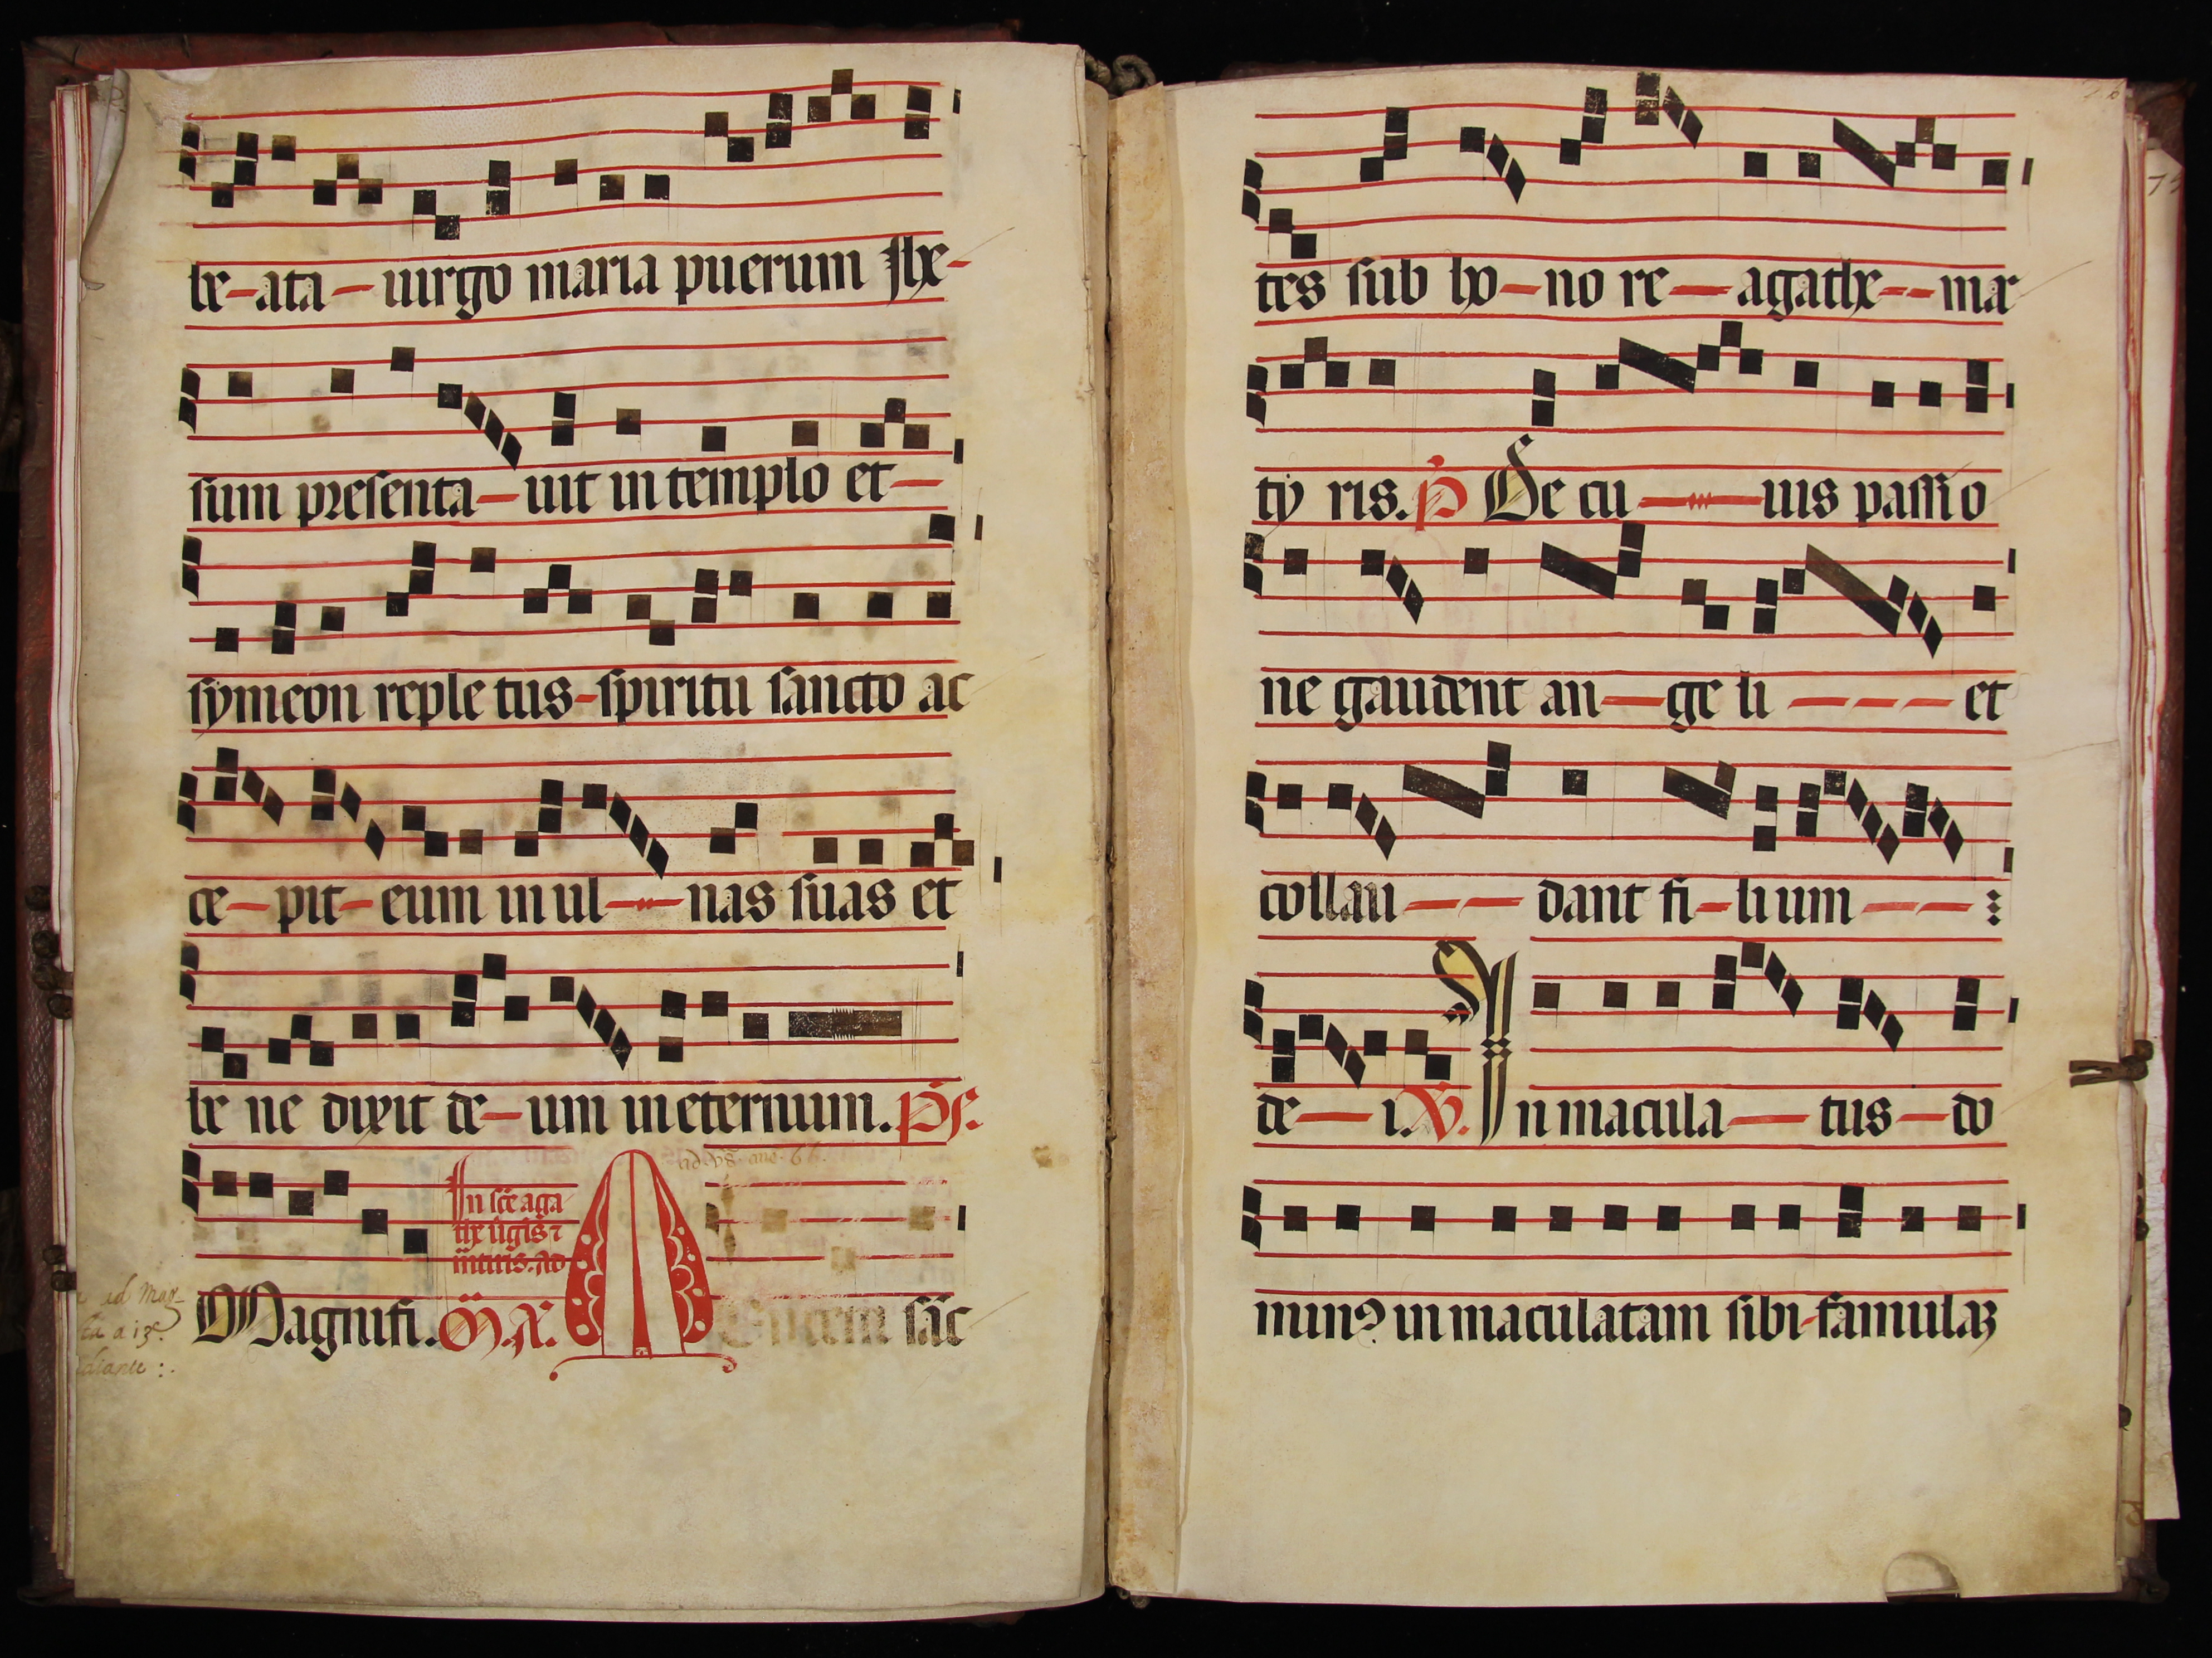 be-ata-uirgo maria puerum Jhe-
sum presenta-uit in templo et-
symeon reple tus-spiritu sancto ac
ce-pit-eum in ul-nas suas et
be ne dixit de-um in eternum. ps.
In scē aga
the ūgis ⁊
Magnifi.
sāc
tes sub ho-no re-agathe--mar
ty ris. p̄ De cu-uius passi o
ne gaudent an-ge li --- et
collau -- dant fi-li um --
de-i. V. In macula-tus-do
minꝰ in maculatam sibi-famulaꝫ